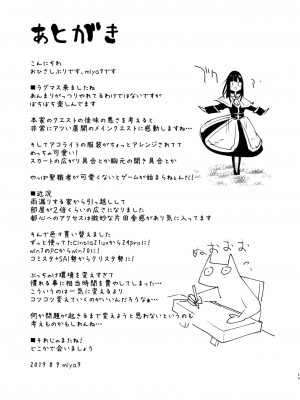 あとがき
こんにちわ
おひさしぶりです、miya9です
■ラグマス来ましたね
あんまりがっつりやれてるわけではないですが
ぼちぼち楽しんでます
本家のクエストの後味の悪さを考えると
非常にアツい展開のメインクエストに感動しますね…
そしてアコライトの服装がちょっとアレンジされてて
めっちゃ可愛い!
スカートの広がり具合とか胸元の開き具合とか
やっぱ聖職者が可愛くないとゲームが始まらねぇんだ!
■近況
雨漏りする家から引っ越しして
部屋が2倍くらいの広さになりました
都心へのアクセスは微妙な片田舎感があり気に入ってます
そんで色々買い替えました
ずっと使ってたcintiq21uxから24proに!
win7のPCからwin10に!
コミスタ+SAI勢からクリスタ勢に!
ぶっちゃけ環境を変えすぎて
慣れる事に相当時間を費やしてしまった…
こういうのは一気に変えるより
コツコツ変えていくのがいいんだろうなぁ…
何か問題が起きるまで変えようと思わないというのも
考えものかもしれんね…
■それじゃまたね!
どこかで会いましょう
2019 8 9 miya9
ふわ
ぬおおおむ